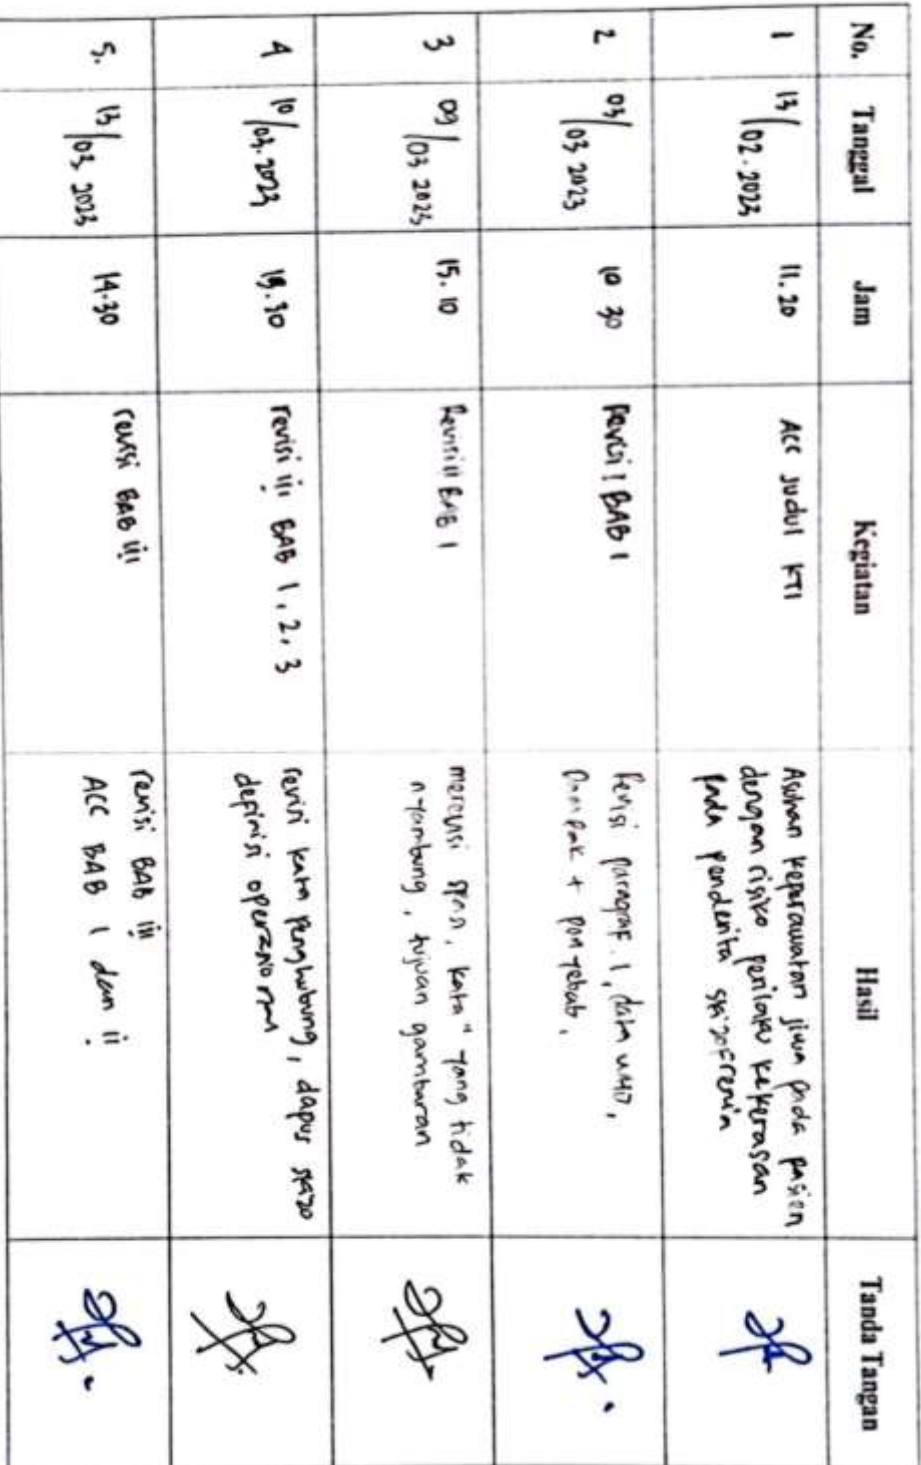 No. Tanggal Jam Kegiatan Hasil Tanda Tangan
1 13/02.2023 11.20 ACC Judul KTI Asuhan keperawatan jiwa pada pasien
dengan risiko perilaku kekerasan
pada penderita skizofrenia
2 03/03 2023 10 30 Revisi I BAB I Revisi paragraf 1, data WHO,
Dampak + penyebab.
3 09/03 2023 15.10 Revisi II BAB I merevisi spasi, kata" yang tidak
nyambung, tujuan gambaran
4 10/03.2023 revisi iii BAB 1, 2, 3 revisi kata penghubung, dapus
definisi operasional
5. 13/03 2023 14.30 revisi BAB iii revisi BAB iii
ACC BAB I dan ii